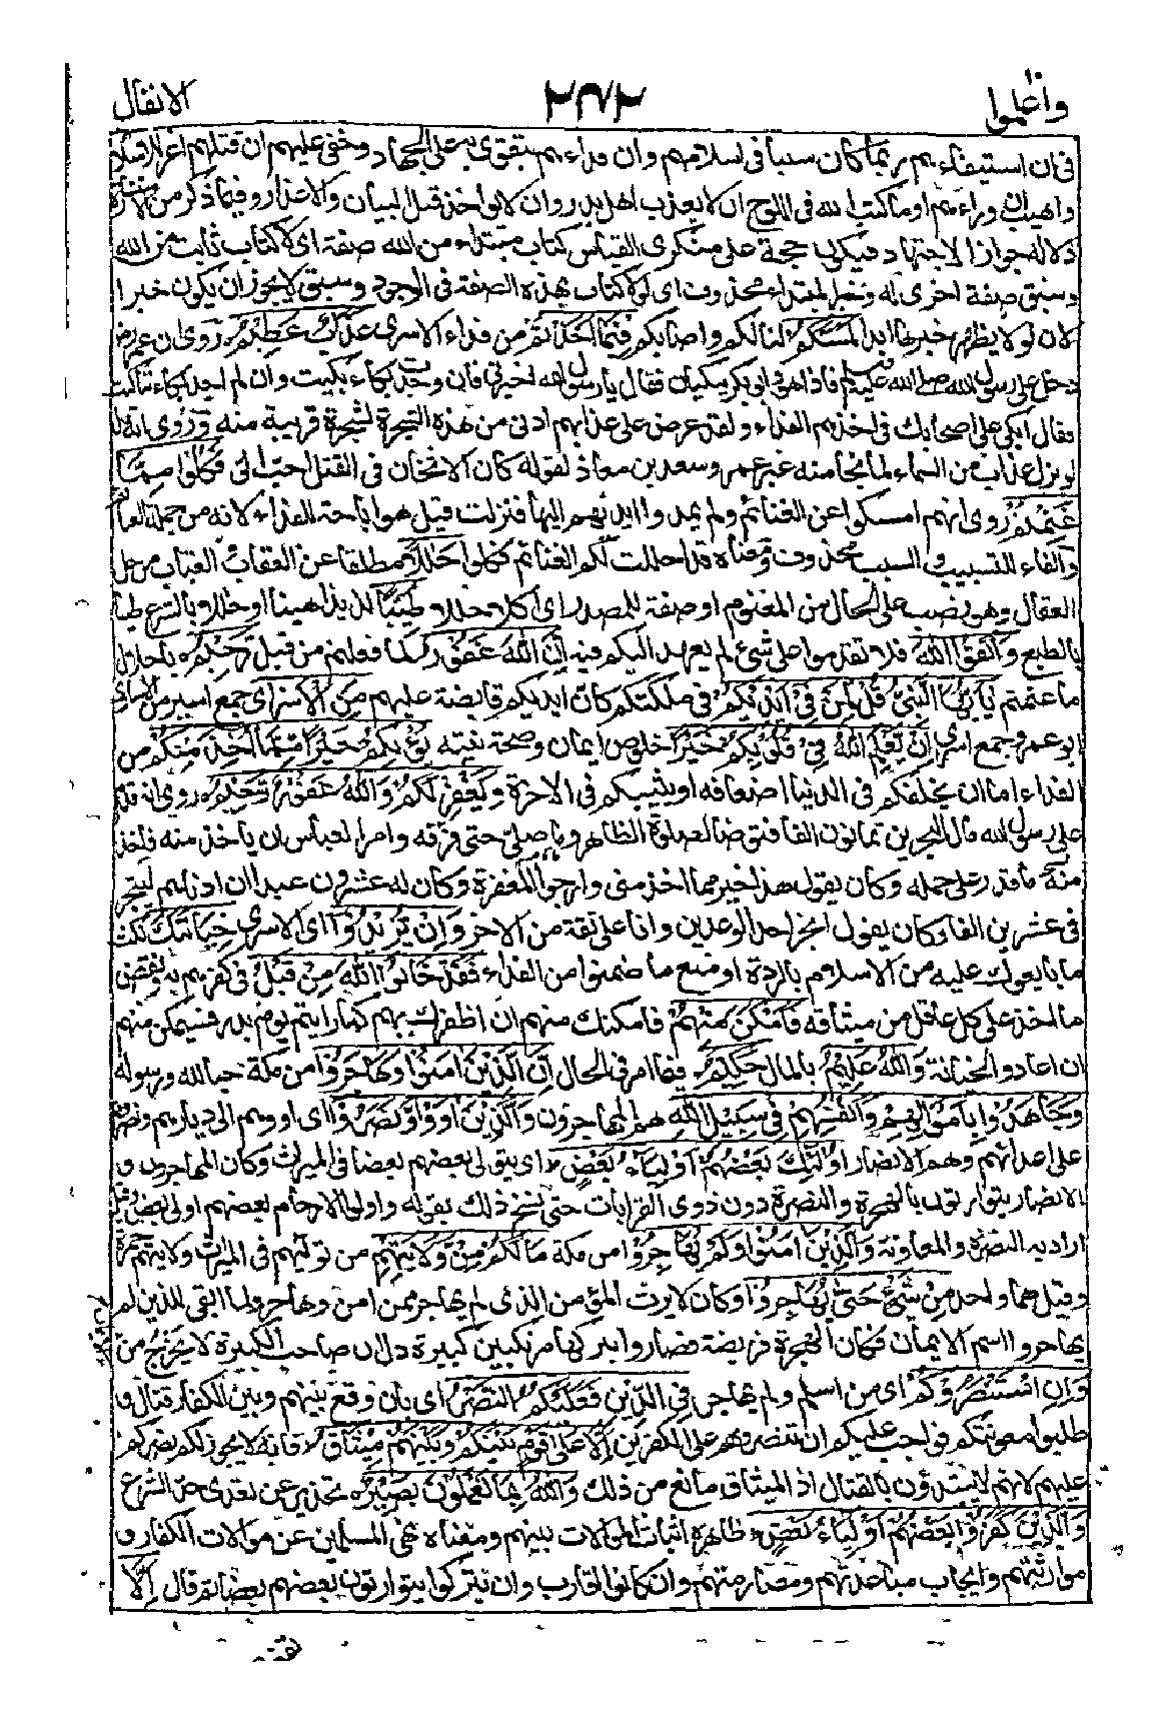 واعلموا ١٠
٢٧٢
الانفال
فى ان استبقاءهم ربما كان سببا فى اسلامهم وان فداءهم يتقوى به على الجهاد وخفى عليهم ان قتلهم اعز للاسلام
واهيب لمن وراءهم او ما كتب الله فى اللوح ان لا يعذب اهل بدر وان لا يواخذ قبل البيان والاعذار وفيما ذكر من الاستشارة
دلالة جواز الاجتهاد فيكون حجة على منكرى القياس كتاب مبتداء من الله صفة اى لولا كتاب ثابت من الله
وسبق صفة اخرى له وخبر المبتداء محذوف اى لولا كتاب بهذه الصفة فى الوجود وسبق لا يجوز ان يكون خبرا
لان لولا يظهر خبرها ابدا لَمَسَّكُمْ لنالكم واصابكم فِيْمَا اَخَذْتُمْ من فداء الاسرى عَذَابٌ عَظِيْمٌ روى ان عمر رض
دخل على رسول الله صلى الله عليه وسلم فاذا هو وابو بكر يبكيان فقال يا رسول الله اخبرنى فان وجدت بكاء بكيت وان لم اجد بكاء تباكيت
فقال ابكى على اصحابك فى اخذهم الفداء ولقد عرض على عذابهم ادنى من هذه الشجرة لشجرة قريبة منه وروى انه قال
لو نزل عذاب من السماء لما نجا منه غير عمر وسعد بن معاذ لقوله كان الاثخان فى القتل احب الى فَكُلُوْا مِمَّا
غَنِمْتُمْ روى انهم امسكوا عن الغنائم ولم يمدوا ايديهم اليها فنزلت قيل هو اباحة الفداء لانه من جملة الغنائم
والفاء للتسبيب والسبب محذوف ومعناه قد احللت لكم الغنائم فكلوا حَلٰلًا مطلقا عن العقاب والعتاب من حل
العقال وهو نصب على الحال من المغنوم او صفة للمصدر اى اكلا حلالا طَيِّبًا لذيذا هنيئا او حلالا بالشرع طيبا
بالطبع وَاتَّقُوا اللّٰهَ فلا تقدموا على شئ لم يعهد اليكم فيه اِنَّ اللّٰهَ غَفُوْرٌ لما فعلتم من قبل رَّحِيْمٌ باحلال
ما غنمتم يٰاَيُّهَا النَّبِىُّ قُلْ لِّمَنْ فِىْ اَيْدِيْكُمْ فى ملكتكم كان ايديكم قابضة عليهم مِنَ الْاَسْرٰى جمع اسير من الاسارى
ابو عمرو جمع اسرى اِنْ يَّعْلَمِ اللّٰهُ فِىْ قُلُوْبِكُمْ خَيْرًا خلوص ايمان وصحة نيته يُؤْتِكُمْ خَيْرًا مِّمَّا اُخِذَ مِنْكُمْ من
الفداء اما ان يخلفكم فى الدنيا اضعافه او يثيبكم فى الاخرة وَيَغْفِرْ لَكُمْ وَاللّٰهُ غَفُوْرٌ رَّحِيْمٌ روى انه قدم
على رسول الله مال البحرين ثمانون الفا فتوضا لصلوة الظهر وما صلى حتى فرقه وامر العباس ان ياخذ منه فاخذ
منه ما قدر على حمله وكان يقول هذا خير مما اخذ منى وارجو المغفرة وكان له عشرون عبدا ان ادناهم ليتجر
فى عشرين الفا وكان يقول انجز احد الوعدين وانا على ثقة من الاخر وَاِنْ يُّرِيْدُوْا اى الاسرى خِيَانَتَكَ نكث
ما بايعوك عليه من الاسلام بالردة او منع ما ضمنوا من الفداء فَقَدْ خَانُوا اللّٰهَ مِنْ قَبْلُ فى كفرهم به ونقض
ما اخذ على كل عاقل من ميثاقه فَاَمْكَنَ مِنْهُمْ فامكنك منهم ان اظفرك بهم كما رايتم يوم بدر فسيمكن منهم
ان اعادوا الخيانة وَاللّٰهُ عَلِيْمٌ بالمال حَكِيْمٌ فيما امر فى الحال اِنَّ الَّذِيْنَ اٰمَنُوْا وَهَاجَرُوْا من مكة حبا لله ورسوله
وَجَاهَدُوْا بِاَمْوَالِهِمْ وَاَنْفُسِهِمْ فِىْ سَبِيْلِ اللّٰهِ هم المهاجرون وَالَّذِيْنَ اٰوَوْا وَّنَصَرُوْا اى اووهم الى ديارهم ونصروهم
على اعدائهم وهم الانصار اُولٰئِكَ بَعْضُهُمْ اَوْلِيَاءُ بَعْضٍ اى يتولى بعضهم بعضا فى الميراث وكان المهاجرون و
الانصار يتوارثون بالهجرة والنصرة دون ذوى القرابات حتى نسخ ذلك بقوله واولوا الارحام بعضهم اولى ببعض وقيل
اراد به النصرة والمعاونة وَالَّذِيْنَ اٰمَنُوْا وَلَمْ يُهَاجِرُوْا من مكة مَا لَكُمْ مِّنْ وَّلَايَتِهِمْ من توليهم فى الميراث ولايتهم حمزة
وقيل هما واحد مِّنْ شَىْءٍ حَتّٰى يُهَاجِرُوْا وكان لا يرث المؤمن الذى لم يهاجر ممن امن وهاجر ولما ابقى للذين لم
يهاجروا اسم الايمان فكان الهجرة فريضة فصاروا بتركها مرتكبين كبيرة دل ان صاحب الكبيرة لا يخرج من
وَاِنِ اسْتَنْصَرُوْكُمْ اى من اسلم ولم يهاجر فِى الدِّيْنِ فَعَلَيْكُمُ النَّصْرُ اى بان وقع بينهم وبين الكفار قتال و
طلبوا معونتكم فواجب عليكم ان تنصروهم على الكفرين اِلَّا عَلٰى قَوْمٍ بَيْنَكُمْ وَبَيْنَهُمْ مِّيْثَاقٌ فانه لا يجوز لكم نصركم
عليهم لانهم لا يبتدؤن بالقتال اذ الميثاق مانع من ذلك وَاللّٰهُ بِمَا تَعْمَلُوْنَ بَصِيْرٌ تحذير عن تعدى حد الشرع
وَالَّذِيْنَ كَفَرُوْا بَعْضُهُمْ اَوْلِيَاءُ بَعْضٍ ظاهره اثبات الموالات بينهم ومعناه نهى المسلمين عن موالات الكفار و
موارثتهم وايجاب مباعدتهم ومصارمتهم وان كانوا اقارب وان يتركوا يتوارثون بعضهم بعضا ثم قال اِلَّا